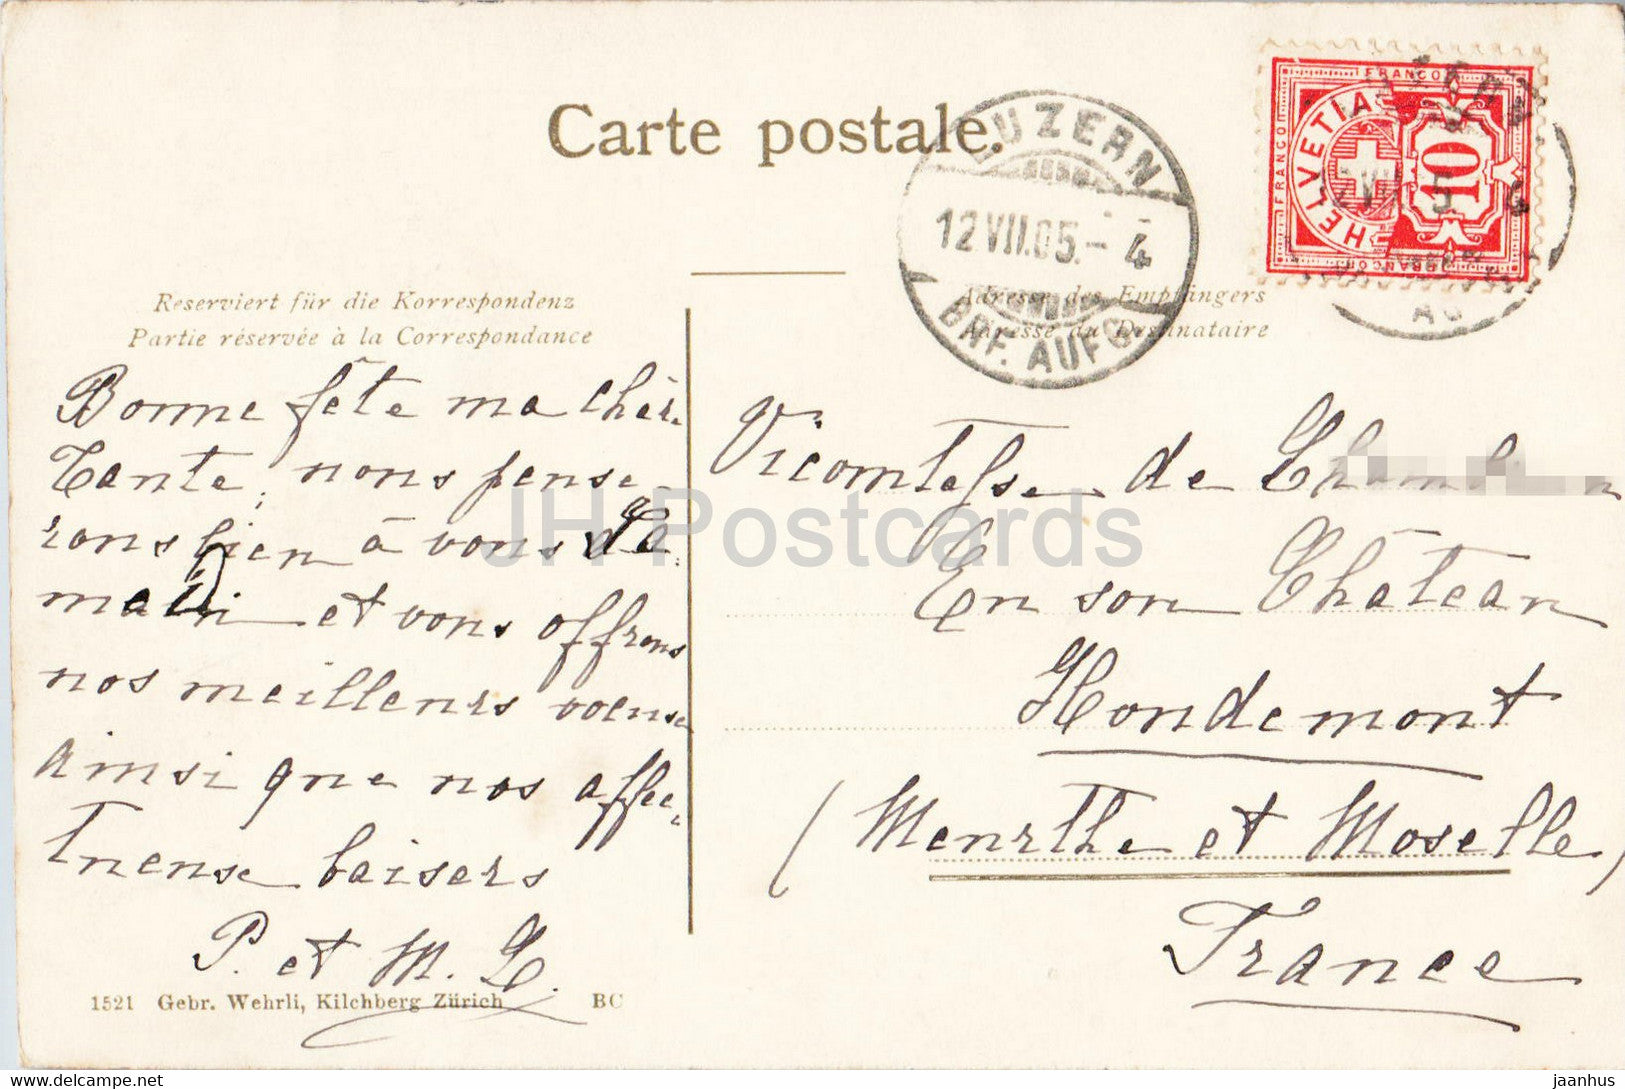 Carte postale.
LUZERN
12 VII.05.-4
BRF. AUFG.
FRANCO
FRANCO
HELVETIA
10
FRANCO
Reserviert für die Korrespondenz
Partie réservée à la Correspondance
Adresse des Empfängers
Adresse du Destinataire
Bonne fête ma chère
Tante, nous pense
rons bien à vous de
main et vous offrons
nos meilleurs voeux
ainsi que nos affec-
tueuse baisers
P. et M. L.
Vicomtesse de
En son Château
Hondemont
(Meurthe et Moselle)
France
1521 Gebr. Wehrli, Kilchberg Zürich BC
JH Postcards
https://www.delcampe.net
jaanhus